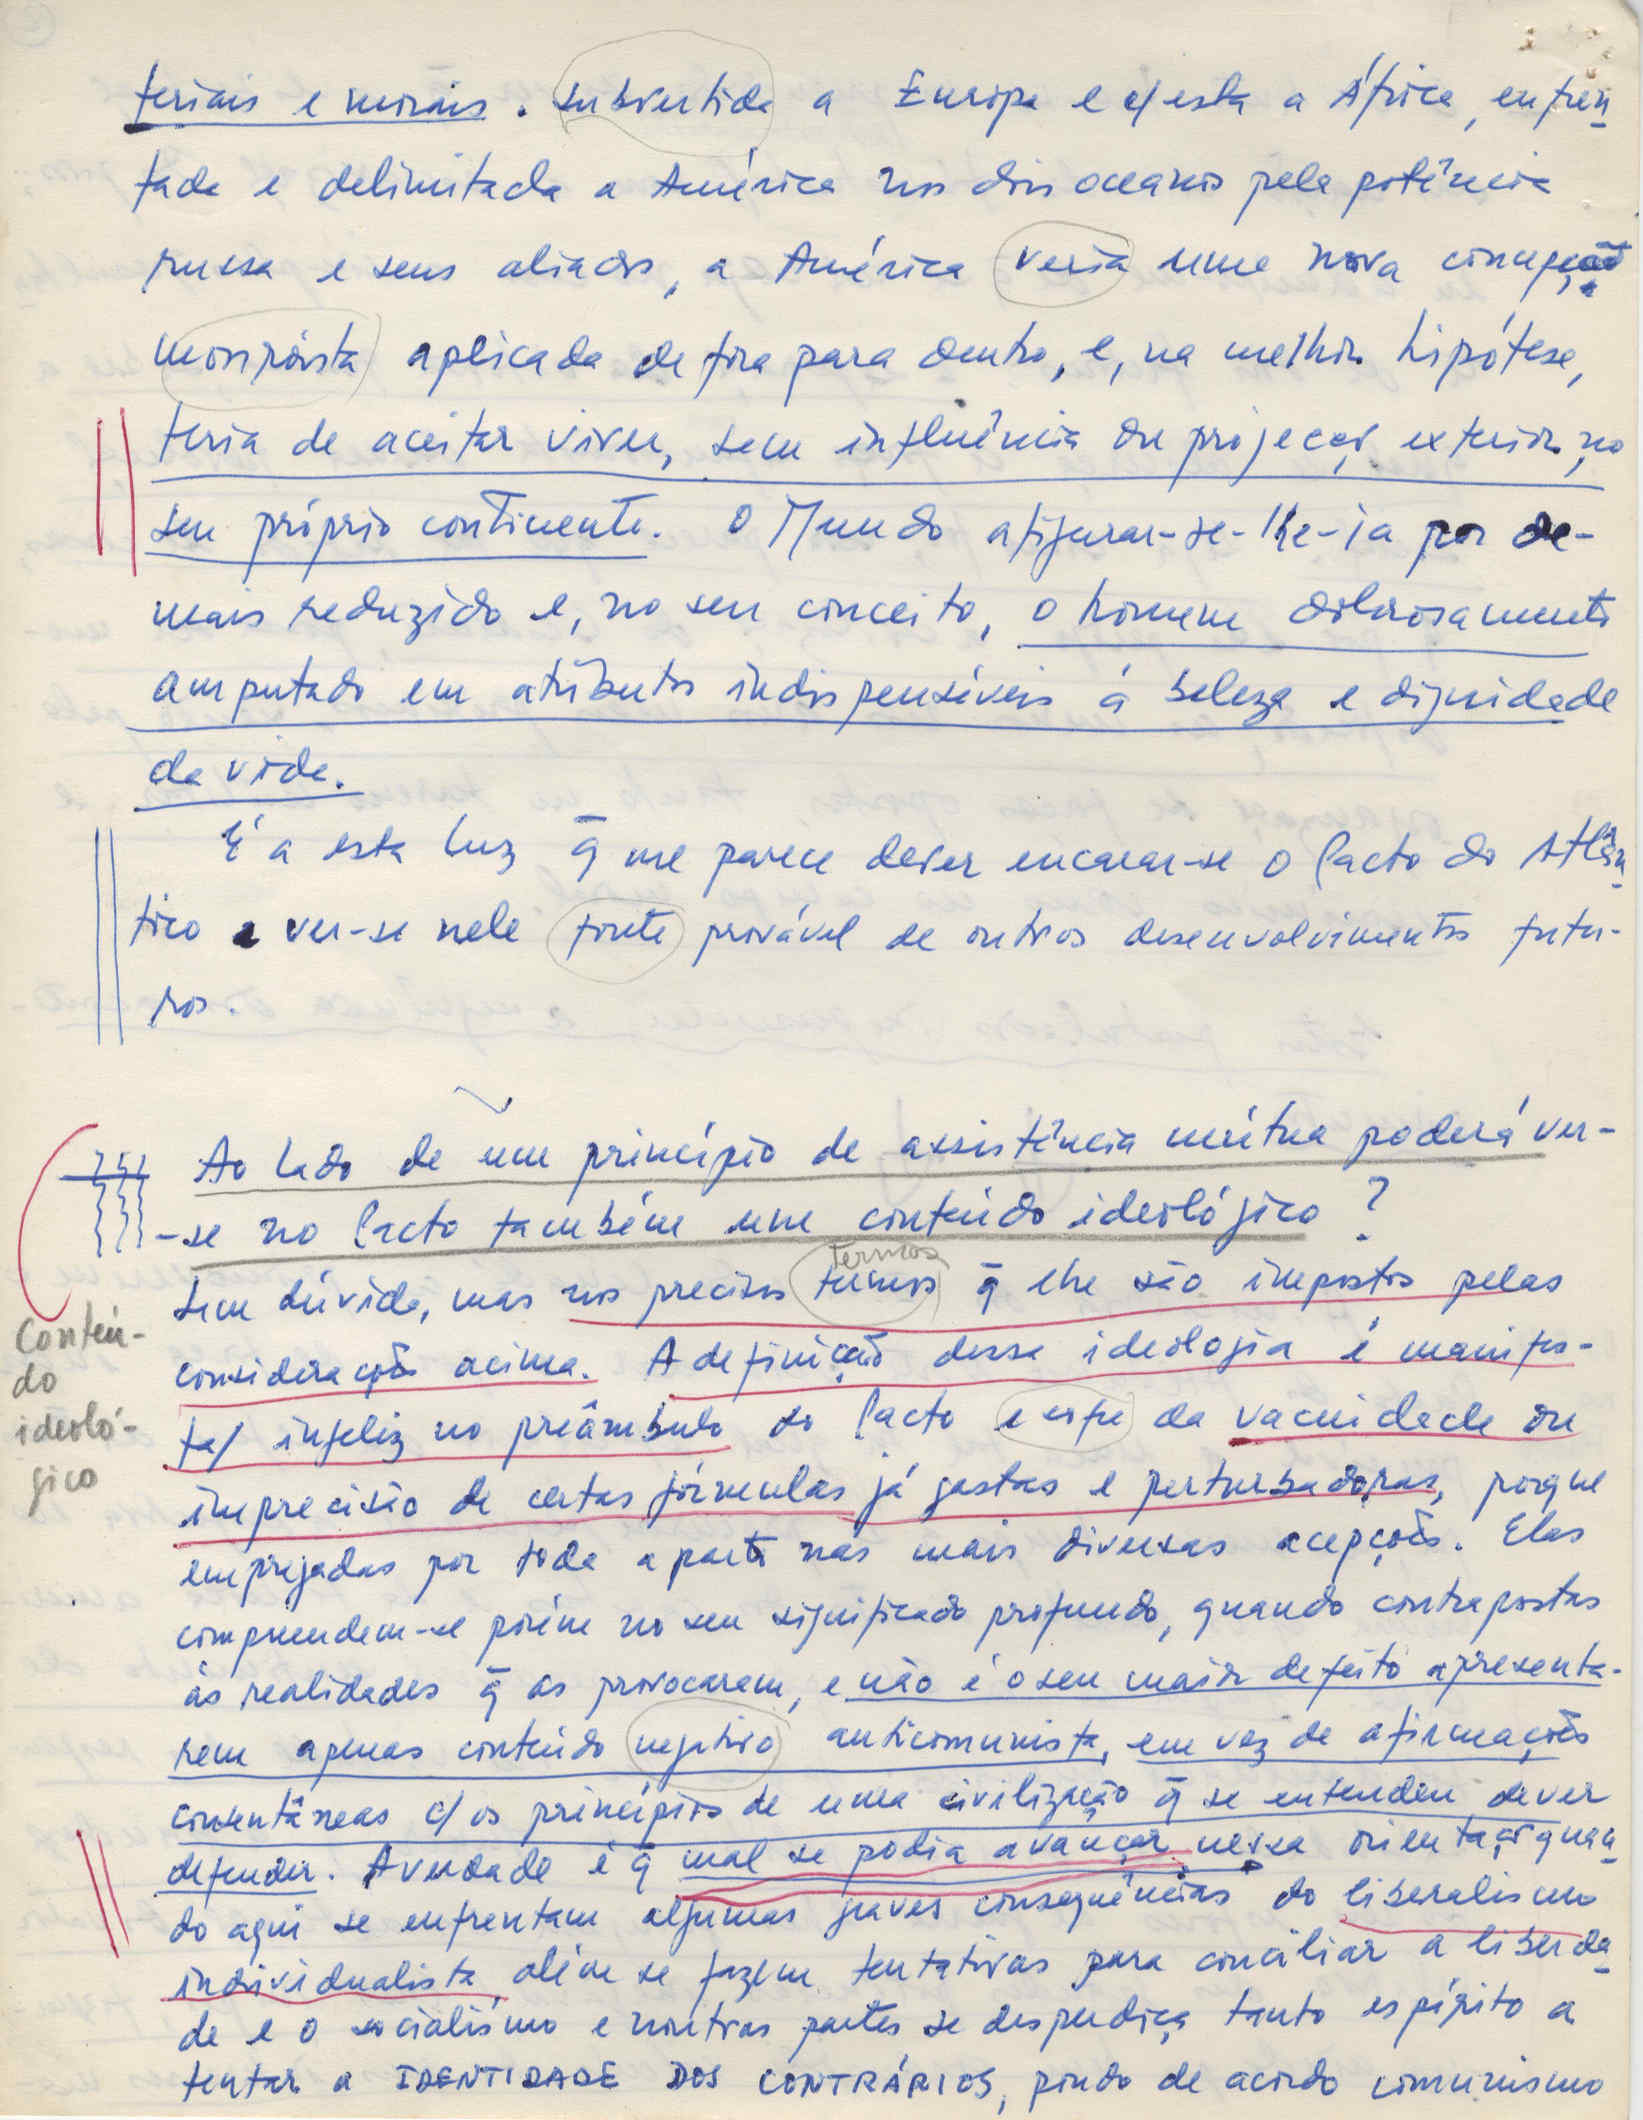 teriais e morais. Subvertida a Europa e c/ esta a África, enfren
tada e delimitada a América nos dois oceanos pela potência
russa e seus aliados, a América veria uma nova concepção
monroista aplicada de fora para dentro, e, na melhor hipótese,
teria de aceitar viver, sem influência ou projecção exterior, no
seu próprio continente. O Mundo afigurar-se-lhe-ia por de-
mais reduzido e, no seu conceito, o homem dolorosamente
amputado em atributos indispensáveis á beleza e dignidade
da vida.
É a esta luz q̄ me parece dever encarar-se o Pacto do Atlân
tico e ver-se nele fonte provável de outros desenvolvimentos futu-
ros.
Ao lado de um princípio de assistência mútua poderá ver-
-se no Pacto também um conteúdo ideológico?
termos
Sem dúvida, mas nos precisos termos q̄ lhe são impostos pelas
considerações acima. A definição dessa ideologia é manifes-
ta/ infeliz no preâmbulo do Pacto e sofre da vacuidade ou
imprecisão de certas fórmulas já gastas e perturbadoras, porque
empregadas por toda a parte nas mais diversas acepções. Elas
compreendem-se porém no seu significado profundo, quando contrapostas
às realidades q̄ as provocaram, e não é o seu maior defeito apresenta-
rem apenas conteúdo negativo anticomunista, em vez de afirmações
consentâneas c/ os princípios de uma civilização q̄ se entendeu dever
defender. A verdade é q̄ mal se podia avançar nessa orientação quan
do aqui se enfrentam algumas graves consequências do liberalismo
individualista, além se fazem tentativas para conciliar a liberda
de e o socialismo e noutras partes se desperdiça tanto espírito a
tentar a IDENTIDADE DOS CONTRÁRIOS, pondo de acordo comunismo
Conteú-
do
ideoló-
gico